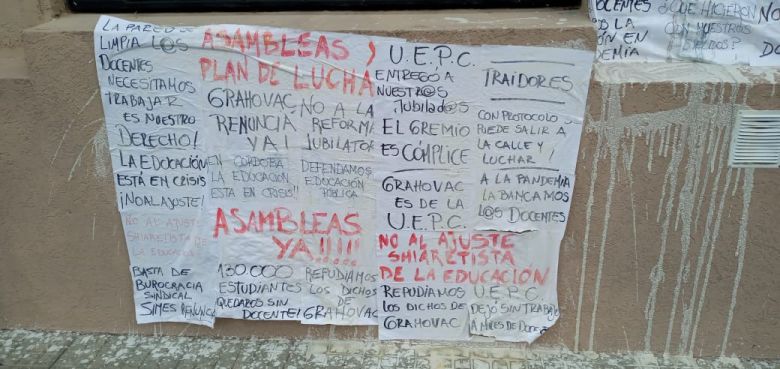 LA PARED SE
LIMPIA L@S
DOCENTES
NECESITAMOS
TRABAJAR
ES NUESTRO
DERECHO!
LA EDUCACIÓN
ESTÁ EN CRISIS
¡NO AL AJUSTE!
NO AL AJUSTE
SHIARETISTA DE
LA EDUCACIÓN
BASTA DE
BUROCRACIA
SINDICAL
ASAMBLEAS Y
PLAN DE LUCHA
GRAHOVAC
RENUNCIA
YA!
NO A LA
REFORMA
JUBILATORIA
EN CORDOBA
LA EDUCACIÓN
ESTÁ EN CRISIS!!
DEFENDAMOS
EDUCACIÓN
PÚBLICA
ASAMBLEAS
YA!!!!!
130.000
ESTUDIANTES
QUEDARON SIN
DOCENTE!
REPUDIAMOS
LOS DICHOS
DE
GRAHOVAC
U.E.P.C.
ENTREGÓ A
NUESTR@S
¡JUBILAD@S
EL GREMIO
ES CÓMPLICE
GRAHOVAC
ES DE LA
U.E.P.C.
TRAIDORES
CON PROTOCOLO SE
PUEDE SALIR A
LA CALLE Y
LUCHAR!
A LA PANDEMIA
LA BANCAMOS
L@S DOCENTES
NO AL AJUSTE
SHIARETISTA
DE LA EDUCACIÓN
REPUDIAMOS
LOS DICHOS DE
GRAHOVAC
U.E.P.C.
DEJÓ SIN TRABAJO
A MILES DE
DOCENTES
¿QUE HICIERON
CON NUESTROS
NO